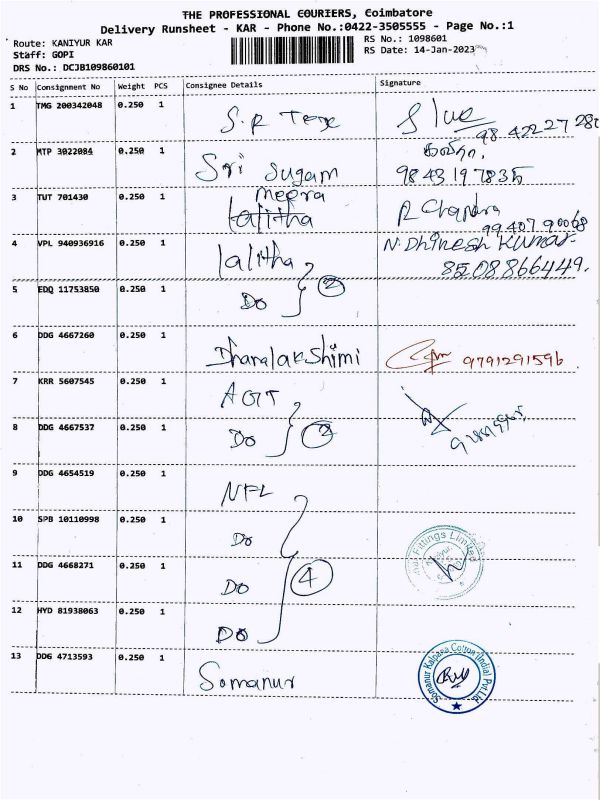 THE PROFESSIONAL COURIERS, Coimbatore
Delivery Runsheet - KAR - Phone No.:0422-3505555 - Page No.:1
Route: KANIYUR KAR
RS No.: 1098601
Staff: GOPI
RS Date: 14-Jan-2023
DRS No.: DCJB109860101
S No Consignment No Weight PCS Consignee Details Signature
1 TMG 200342048 0.250 1 S.R Tex
98 42227 280
2 MTP 3022084 0.250 1 Sri Sugam கவிதா.
98431 97835
3 TUT 701430 0.250 1 Meera R Chandra
Lalitha 99407 90068
4 VPL 940936916 0.250 1 lalitha N. Dhinesh Kumar
8508866449.
5 EDQ 11753850 0.250 1 Do 2
6 DDG 4667260 0.250 1 Dhanalakshimi 9791291596.
7 KRR 5607545 0.250 1 AGT
8 DDG 4667537 0.250 1 Do 2
9 DDG 4654519 0.250 1 NFL
10 SPB 10110998 0.250 1 Do
Fittings Limited
11 DDG 4668271 0.250 1 Do 4
12 HYD 81938063 0.250 1 Do
13 DDG 4713593 0.250 1 Somanur
Somanur Kalpana Cotton (India) Pvt.Ltd.